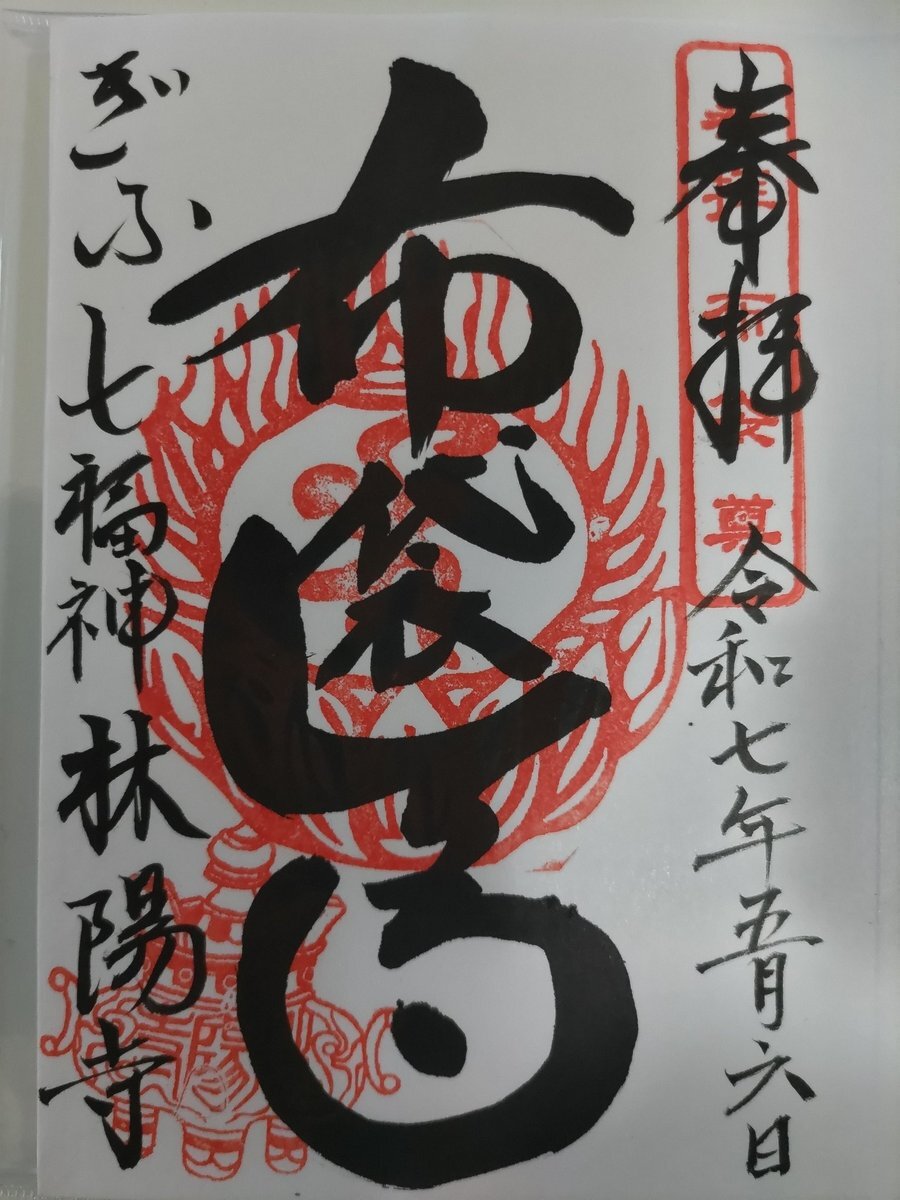 奉拝 令和七年五月六日
布袋尊
ぎふ七福神 林陽寺